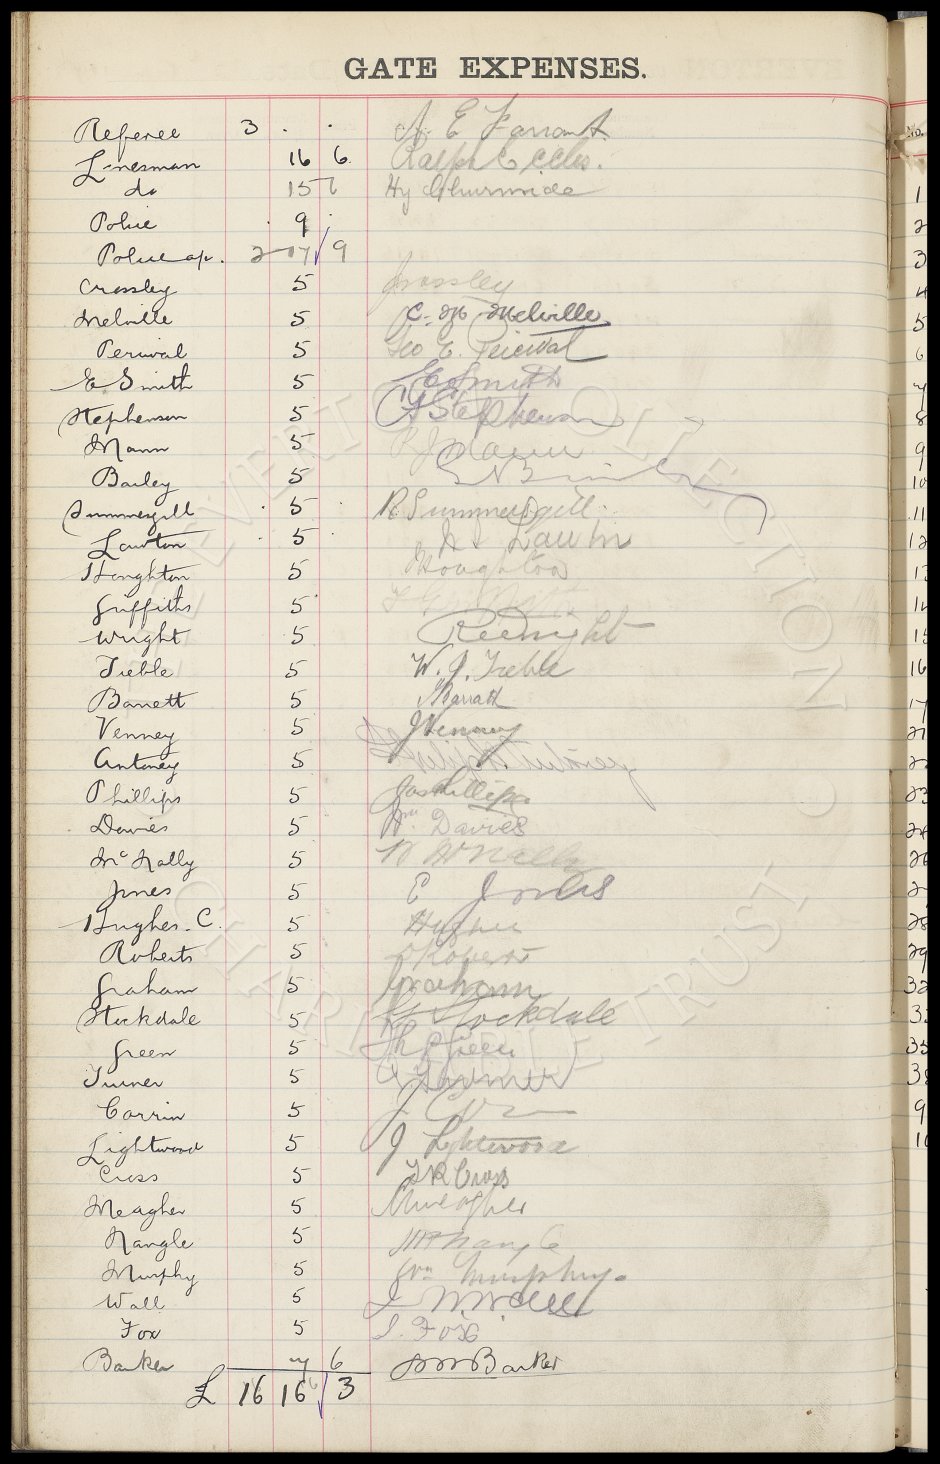 GATE EXPENSES.
Referee 3 . . A. E Farrant
Linesman 16 6 Ralph C Eccles.
do 15 6 Hy
Police 9
Police ap. 2 17 9
Crossley 5 Crossley
Melville 5 C. M Melville
Percival 5 Geo E. Percival
E Smith 5 E Smith
Stephenson 5 Stephenson
Mann 5 Mann
Bailey 5
Summersgill 5 R Summersgill.
Lawton 5 Lawton
Houghton 5 Houghton
Griffiths 5
Wright 5
Treble 5 W. J. Treble
Barrett 5
Venney 5 J Venney
Antoney 5
Phillips 5 Jas Phillips
Davies 5 Wm Davies
Mc Nally 5 McNally
Jones 5 E Jones
Hughes. C. 5 Hughes
Roberts 5 Roberts
Graham 5 Graham
Stockdale 5 Stockdale
Green 5 Green
Turner 5
Corrin 5
Lightwood 5 J Lightwood
Cross 5 Cross
Meagher 5 Meagher
Nangle 5 Nangle
Murphy 5 Wm Murphy.
Wall 5
Fox 5 Fox
Barker 7 6 Barker
£ 16 16 3
No.
1
2
3
4
5
6
7
8
9
10
11
12
13
14
15
16
17
21
22
23
24
26
28
29
32
35
9
10
EVERTON COLLECTION CHARITABLE TRUST ©